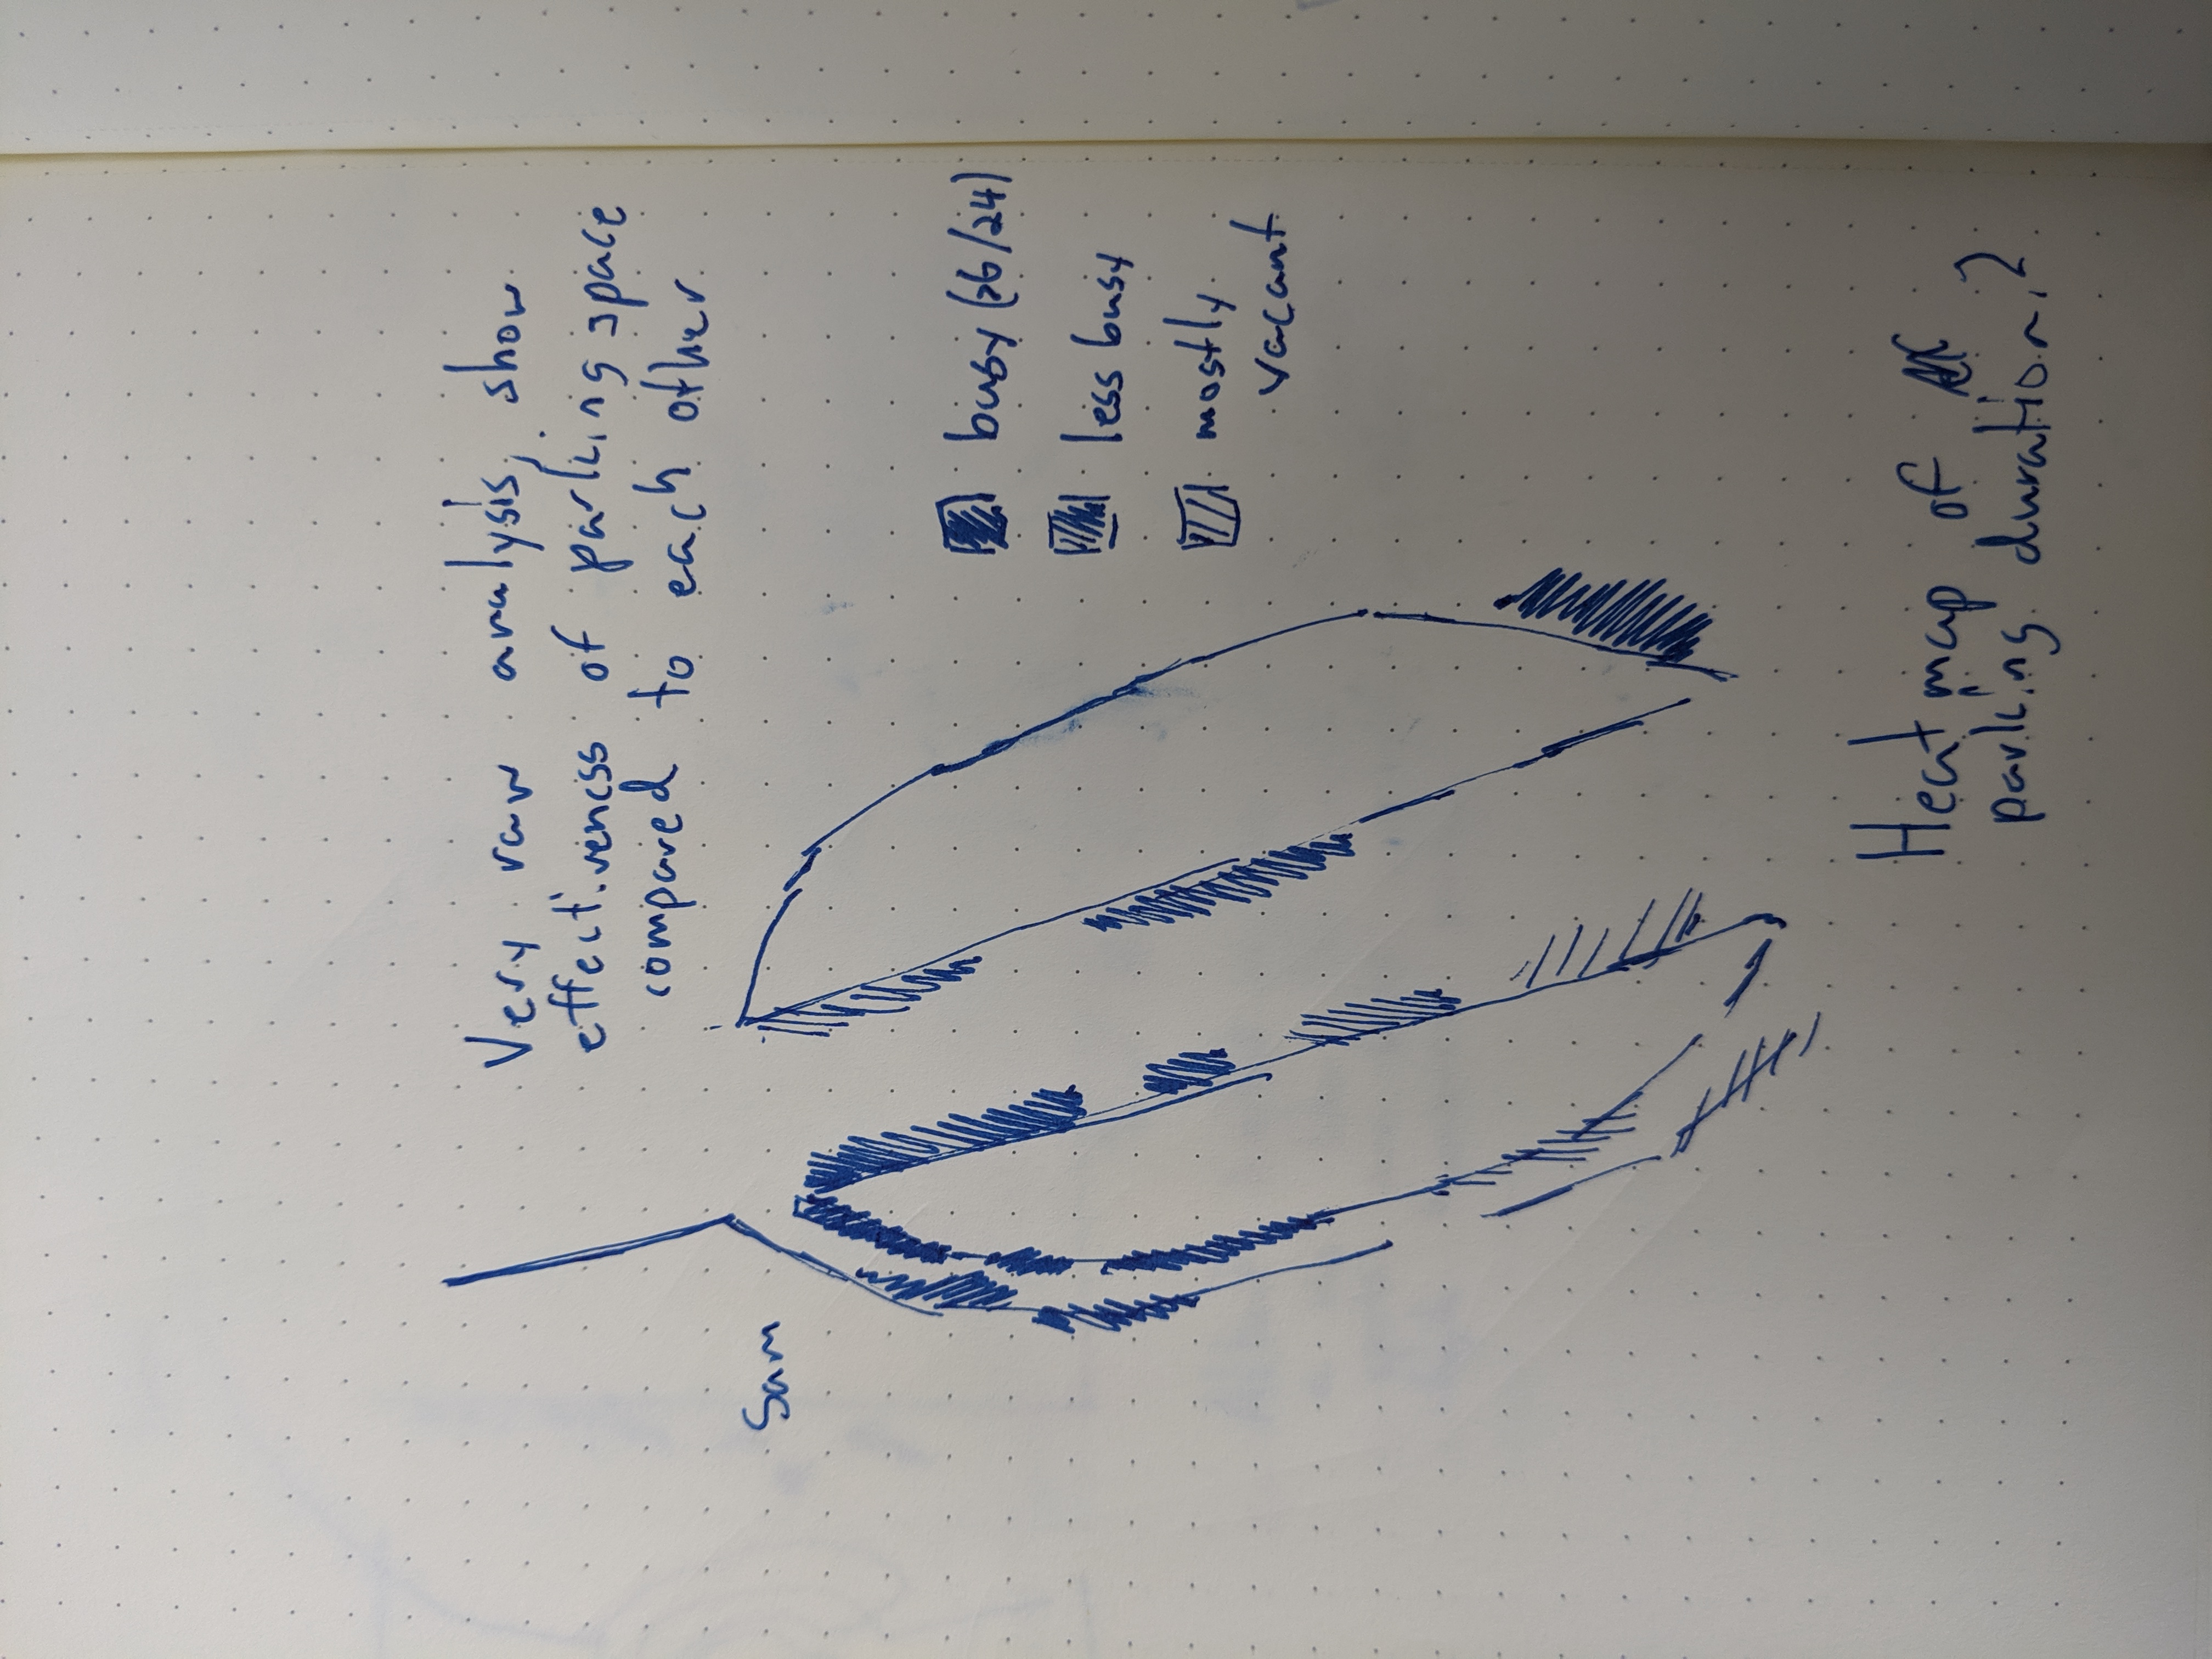 Very raw analysis, show
effectiveness of parking space
compared to each other.
Sam
busy (>6/24)
less busy
mostly
vacant
Heatmap of
parking duration?